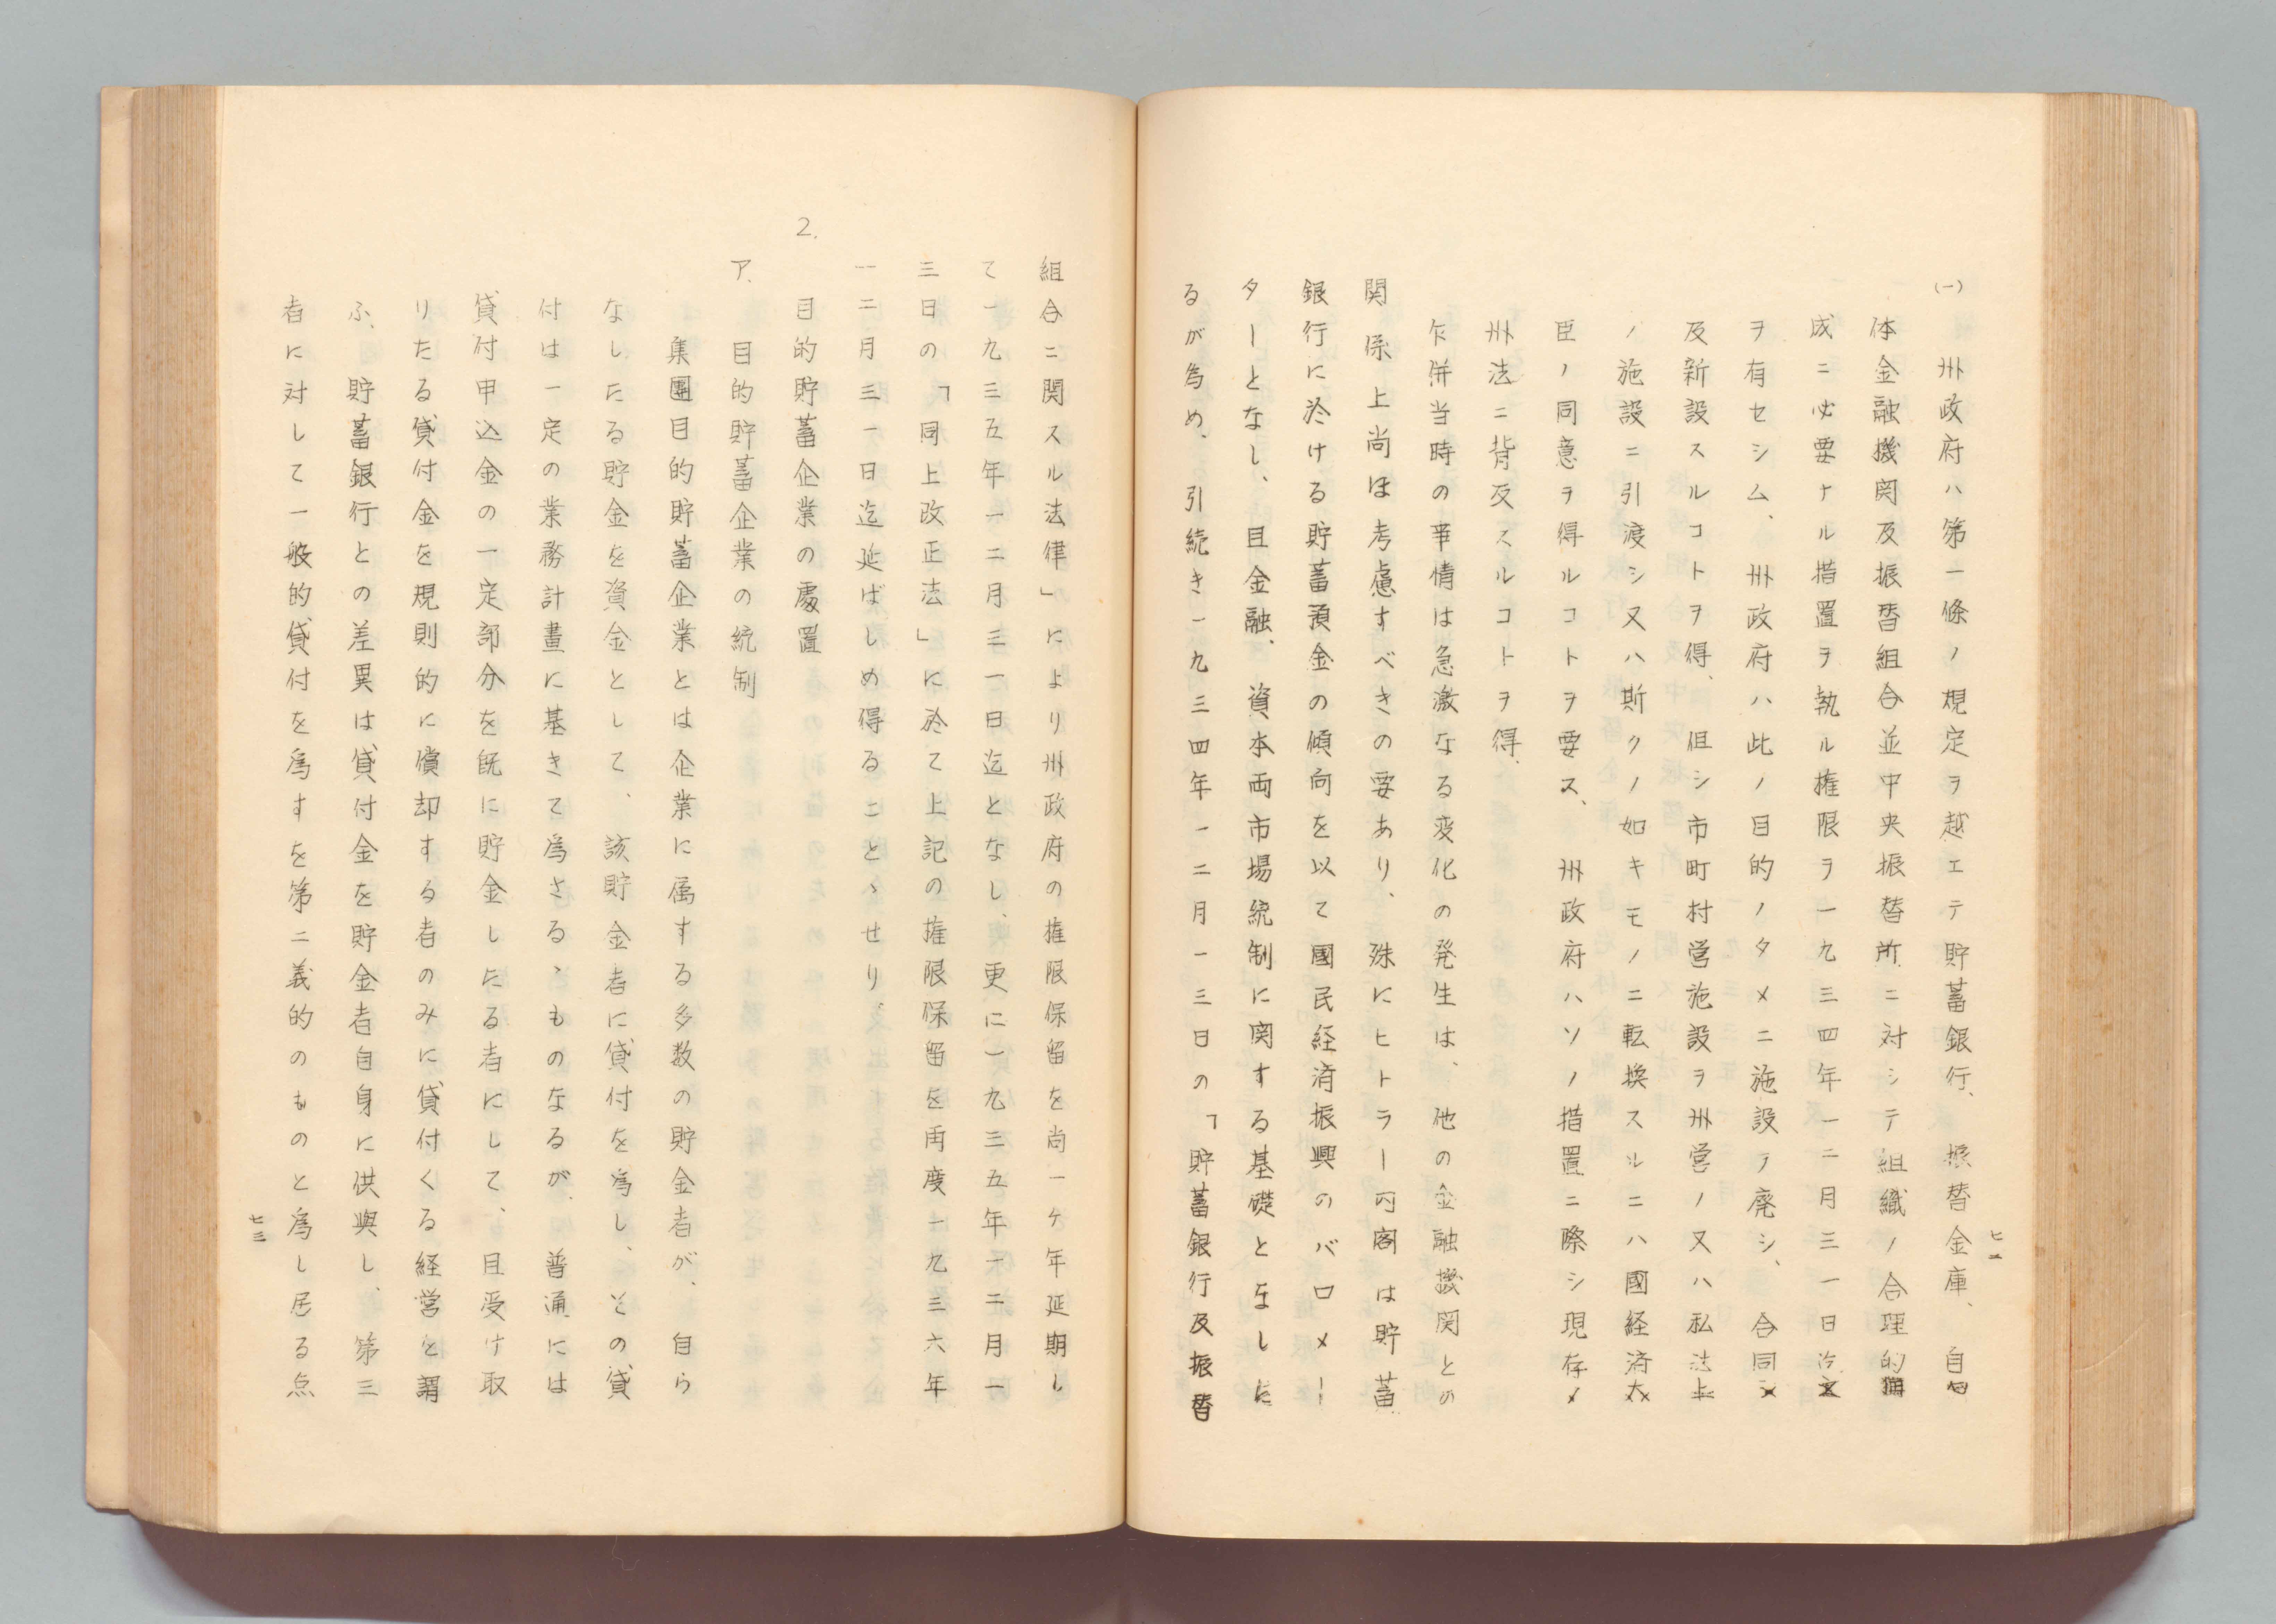 (一)　州政府ハ第一條ノ規定ヲ越エテ貯蓄銀行、振替金庫、自
体金融機関及振替組合並中央振替所ニ対シテ組織ノ合理的
成ニ必要ナル措置ヲ執ル権限ヲ一九三四年一二月三一日迄
ヲ有セシム、州政府ハ此ノ目的ノタメニ施設ヲ廃シ、合同
及新設スルコトヲ得、但シ市町村営施設ヲ州営ノ又ハ私法上
ノ施設ニ引渡シ又ハ斯クノ如キモノニ転換スルニハ國経済大
臣ノ同意ヲ得ルコトヲ要ス、州政府ハソノ措置ニ際シ現存
州法ニ背反スルコトヲ得、
乍併当時の事情は急激なる変化の発生は、他の金融機関との
関係上尚ほ考慮すべきの要あり、殊にヒトラー内閣は貯蓄
銀行に於ける貯蓄預金の傾向を以て國民経済振興のバロメー
ターとなし、且金融、資本両市場統制に関する基礎となした
るが為め、引続き一九三四年一二月一三日の「貯蓄銀行及振替
七二
組合ニ関スル法律」により州政府の権限保留を尚一ケ年延期し
て一九三五年一二月三一日迄となし、更に一九三五年一二月一
三日の「同上改正法」に於て上記の権限保留を再度一九三六年
一二月三一日迄延ばしめ得ることゝせり、
2.　目的貯蓄企業の處置
ア、目的貯蓄企業の統制
集團目的貯蓄企業とは企業に属する多数の貯金者が、自ら
なしたる貯金を資金として、該貯金者に貸付を為し、その貸
付は一定の業務計畫に基きて為さるゝものなるが、普通には
貸付申込金の一定部分を既に貯金したる者にして、且受け取
りたる貸付金を規則的に償却する者のみに貸付くる経営を謂
ふ、貯蓄銀行との差異は貸付金を貯金者自身に供與し、第三
者に対して一般的貸付を為すを第二義的のものと為し居る点
七三